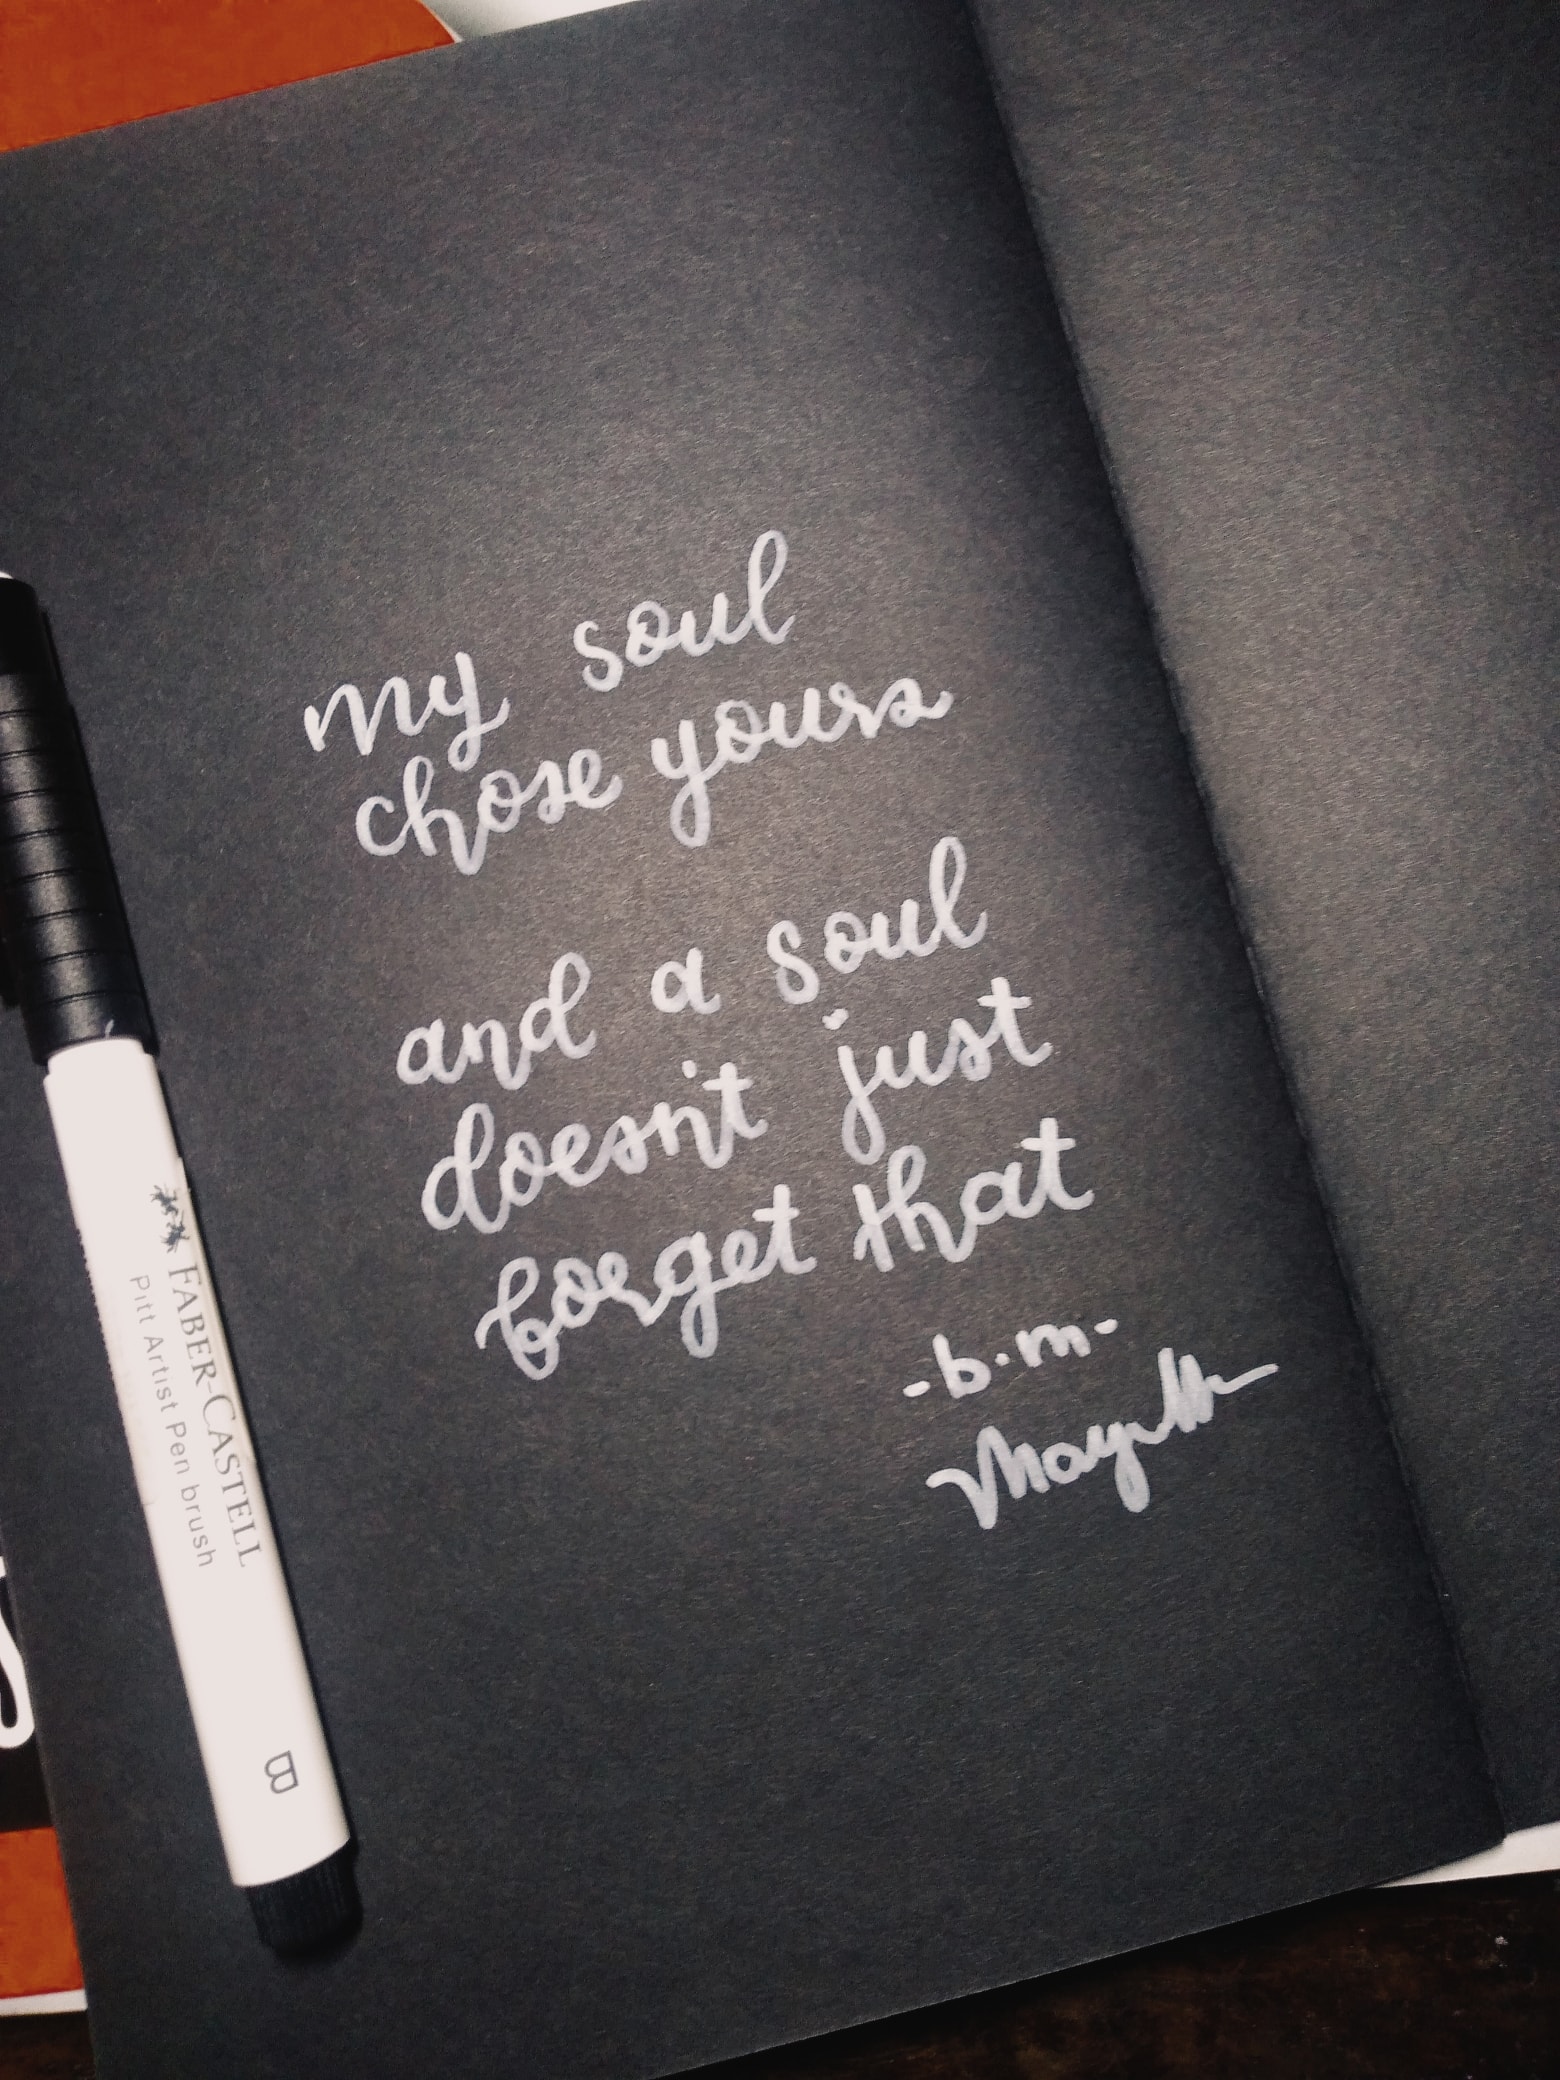 my soul
chose yours
and a soul
doesn't just
forget that
-b.m-
FABER-CASTELL
Pitt Artist Pen brush
B